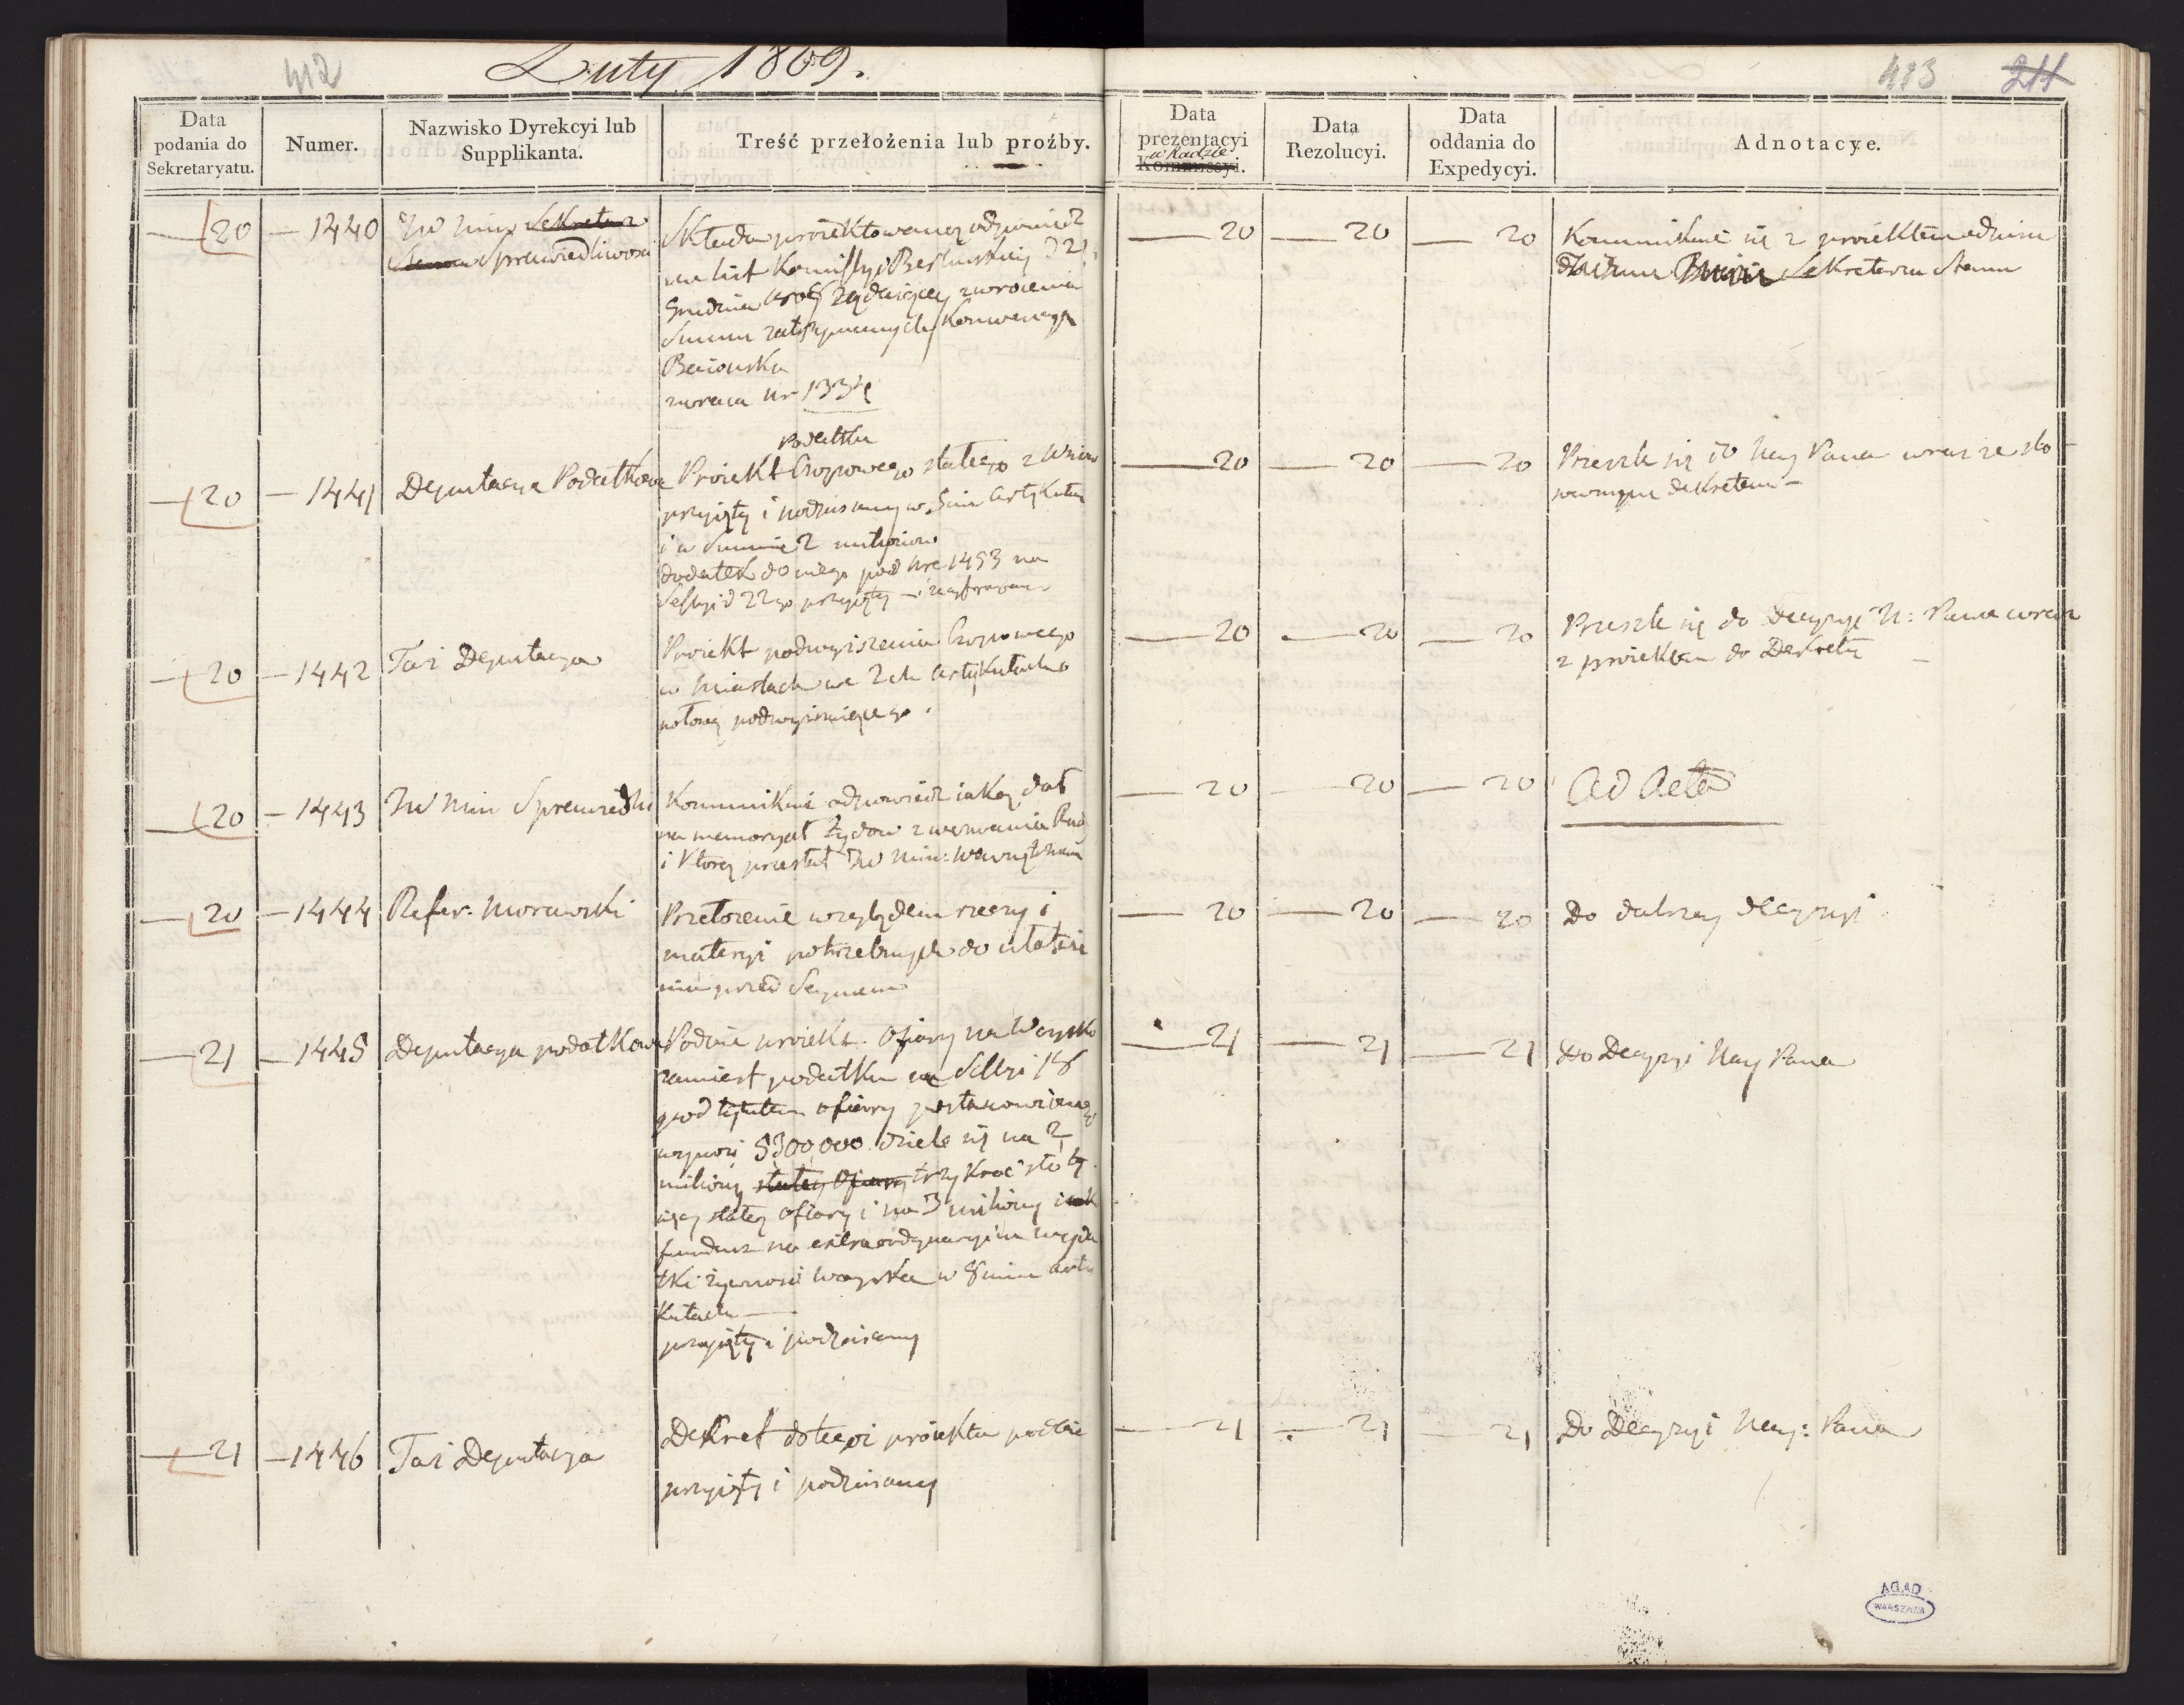 412
Luty 1809.
413 211
Data podania do Sekretaryatu.
Numer.
Nazwisko Dyrekcyi lub Supplikanta.
Treść przełożenia lub proźby.
Data prezentacyi w Radzie Kommissyi.
Data Rezolucyi.
Data oddania do Expedycyi.
Adnotacye.
20 — 1440 JW Min Sekretarz
Stanu Sprawiedliwości
Składa proiektowaną odpowiedź
na list Kommissyi Berlińskiey d 21
Grudnia 1808 żądaiącey zwrócenia
Summ zatrzymanych Konwencyą
Baiońską
zwraca Nr 1334
20 — 20 — 20
Kommunikuie się z proiektem odpisu
Sekretarzu Stanu
20 — 1441 Deputacya Podatkowa
podatku
Proiekt Czopowego stałego z
przyięty i podpisany w 5ciu Artykułach
i w Summie 2 milionów
dodatek do niego pod Nre 1453 na
Sessyi d 22go przyięty —
20 — 20 — 20
Przeszle się do Nay Pana wraz ze sto
sownym dekretem —
20 — 1442 Taż Deputacya
Proiekt podwyższenia Czopowego
w Miastach we 2ch Artykułach o
połowę podwyższaiącego.
20 — 20 — 20
Przeszle się do Decyzyi N: Pana wraz
z proiektem do Dekretu —
20 — 1443 JW Min Sprawiedli
Kommunikuie odpowiedź iaką dał
na memoryał Żydów z wezwania Rady
i którą przesłał JW Min: Wewnętrznemu
20 — 20 — 20
Ad Acta
20 — 1444 Refer: Morawski
Przełożenie względem rzeczy i
materyi potrzebnych do ułatwie
nia przed Seymem
20 — 20 — 20
Do dalszey decyzyi
21 — 1445 Deputacya podatkowa
Podaie proiekt Ofiary na Woysko
zamiast podatku na Sessyi 18
pod tytułem ofiary postanowionego
wynosi 5300,000 dziele się na 2
miliony stałey Ofiary trzy kroć sto ty
sięcy stałey ofiary i na 3 miliony iak
fundusz na extraordynaryine wyda
tki żywności woyska w 8miu arty
kułach —
przyięty i podpisany
21 — 21 — 21
Do Decyzyi Nay Pana
21 — 1446 Taż Deputacya
Dekret do tegoż proiektu podaie
przyięty i podpisany
21 — 21 — 21
Do Decyzyi Nay: Pana
AGAD
WARSZAWA